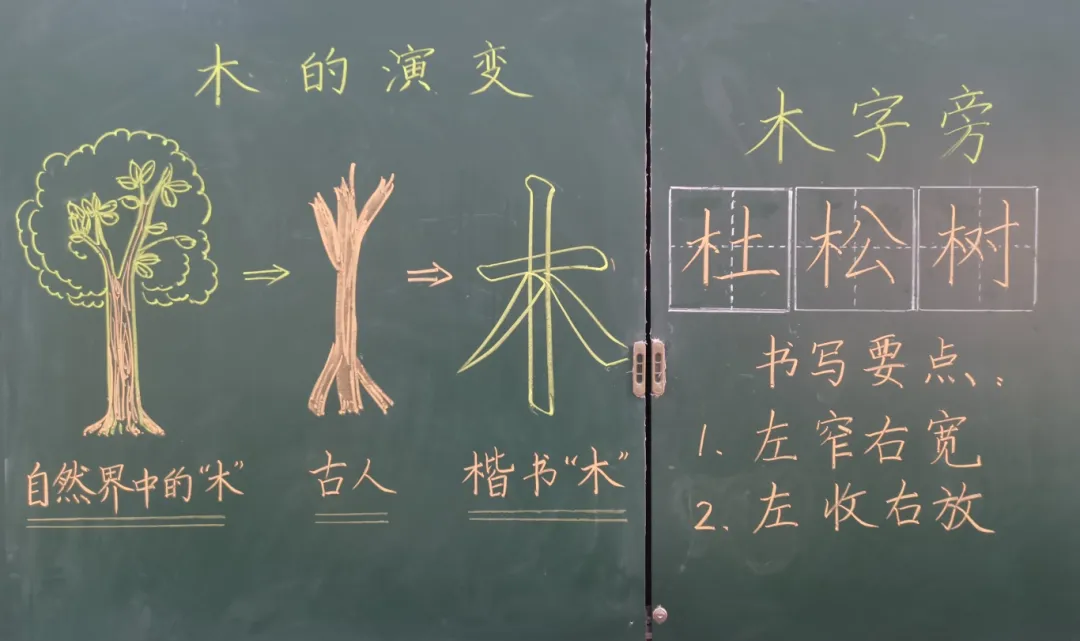 木的演变
自然界中的“木”
古人
楷书“木”
木字旁
杜松树
书写要点：
1. 左窄右宽
2. 左收右放